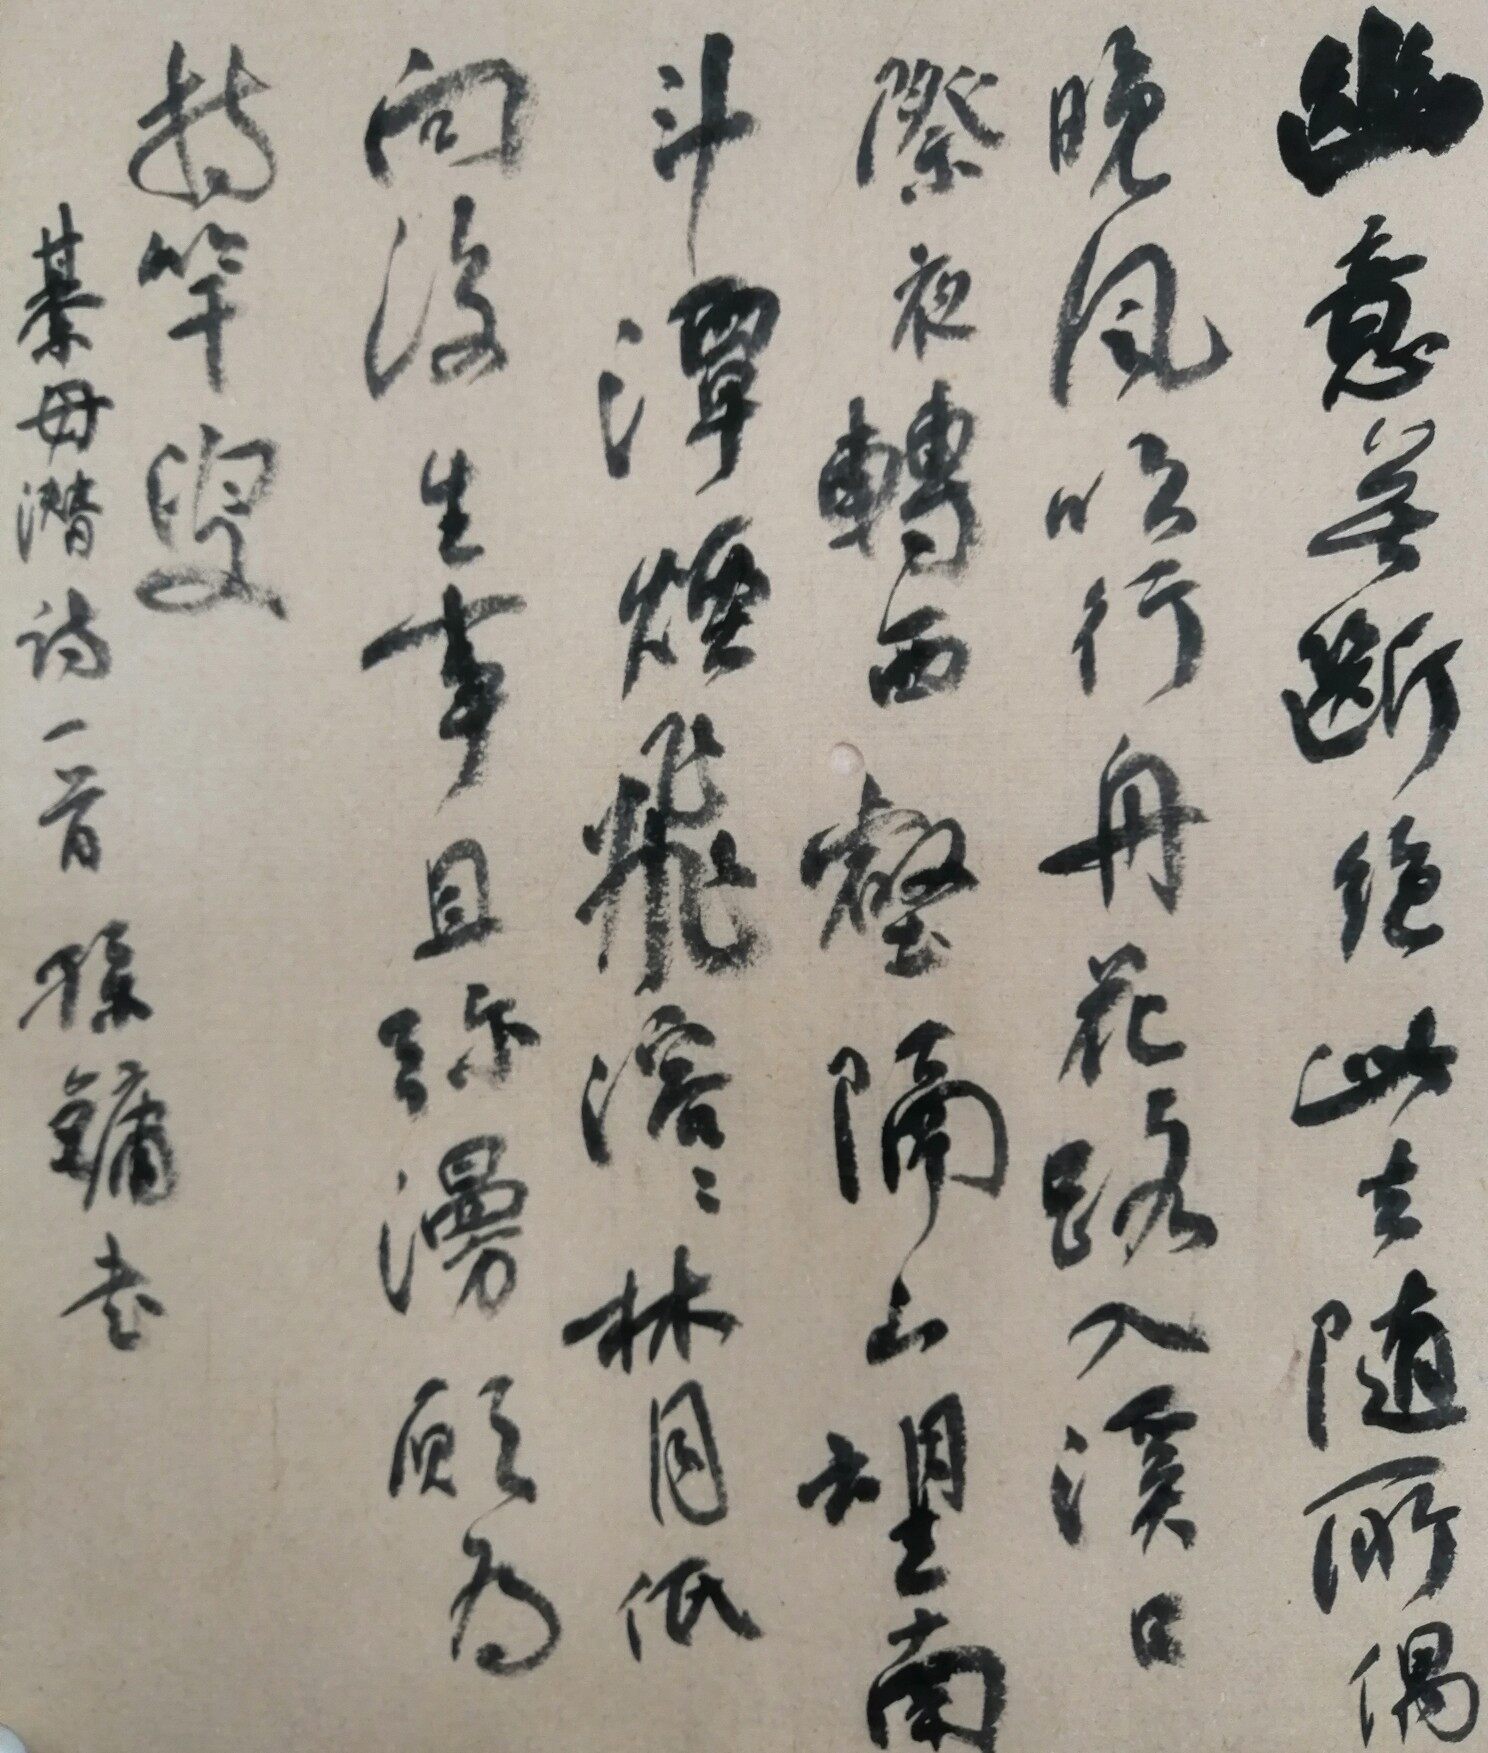 幽意無斷絕此去随所偶
晚風吹行舟花路入溪口
際夜轉西壑隔山望南
斗潭煙飛溶〻林月低
向後生事且弥漫願為
持竿叟
綦母潛詩一首 孫鏞書